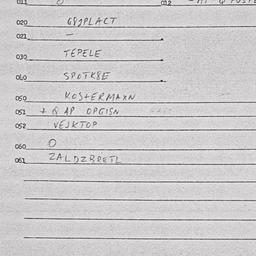 011 0 012
020 G82PLACT
021 -
030 TEPELE
040 SPOTK8E
050 KOSTERMAXN
051 + Q AP OPGISN
052 VEJKTOP
060 O
061 ZALDZBRETL